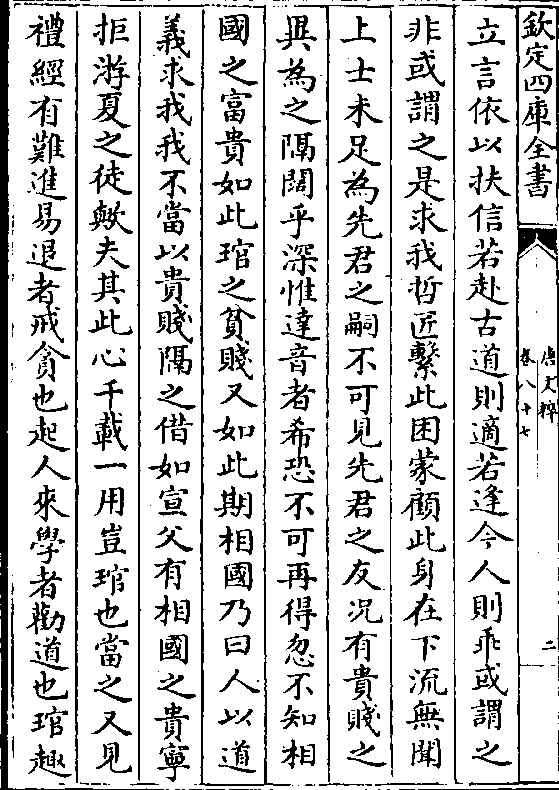 欽定四庫全書
唐文粹
卷八十七
二
立言依以扶信若赴古道則適若逢今人則乖或謂之
非或謂之是求我哲匠繫此困蒙顧此身在下流無聞
上士未足為先君之嗣不可見先君之友况有貴賤之
異為之隔闊乎深惟達音者希恐不可再得忽不知相
國之富貴如此琯之貧賤又如此期相國乃曰人以道
義求我我不當以貴賤隔之借如宣父有相國之貴寧
拒游夏之徒歟夫其此心千載一用豈琯也當之又見
禮經有難進易退者戒貪也起人來學者勸道也琯趣